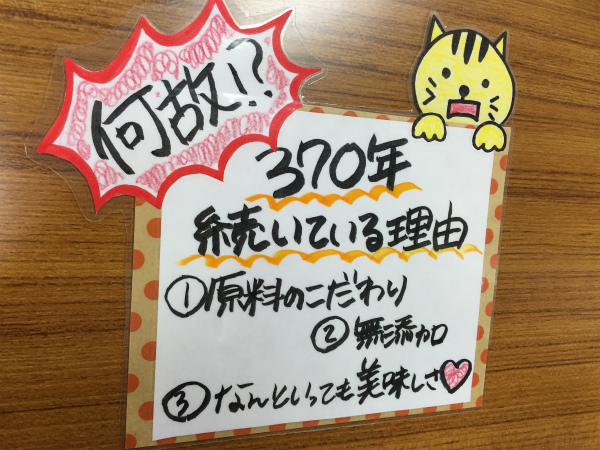 何故!?
370年
続いている理由
①原料のこだわり
②無添加
③なんといっても美味しさ♥